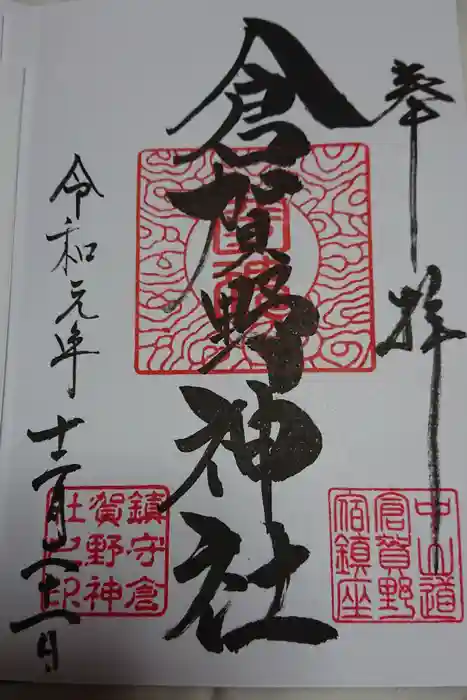 奉拝
中山道
倉賀野
宿鎮座
倉賀野神社
鎮守倉
賀野神
社之印
令和元年
十二月二十一日